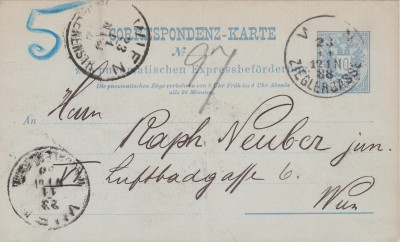 5
CORRESPONDENZ-KARTE
№ 97
zur pneumatischen Expressbeförderung
Die pneumatischen Züge verkehren von 8 Uhr Früh bis 9 Uhr Abends
alle 20 Minuten.
WIEN
23
11
23
ZIEGLERGASSE
An Herrn
Raph. Neuber jun.
VI Luftbadgasse 6.
Wien
WIEN
23
11